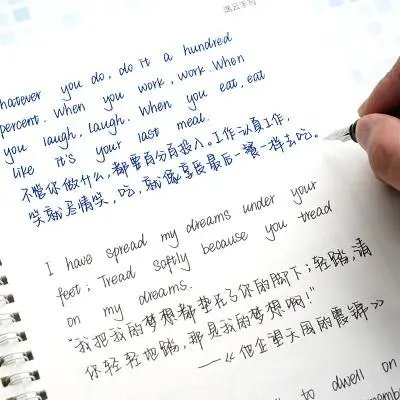 逸云手写
hatever you do, do it a hundred
percent. When you work, work. When
you laugh, laugh. When you eat, eat
like it's your last meal.
不管你做什么，都要百分百投入。工作认真工作，
笑就尽情笑，吃，就像享受最后一餐一样去吃。
I have spread my dreams under your
feet; Tread softly because you tread
on my dreams.
"我把我的梦想都垫在了你的脚下；轻踏，请
你轻轻地踏，那是我的梦想啊！"
——《他企望天国的霞锦》
to dwell on